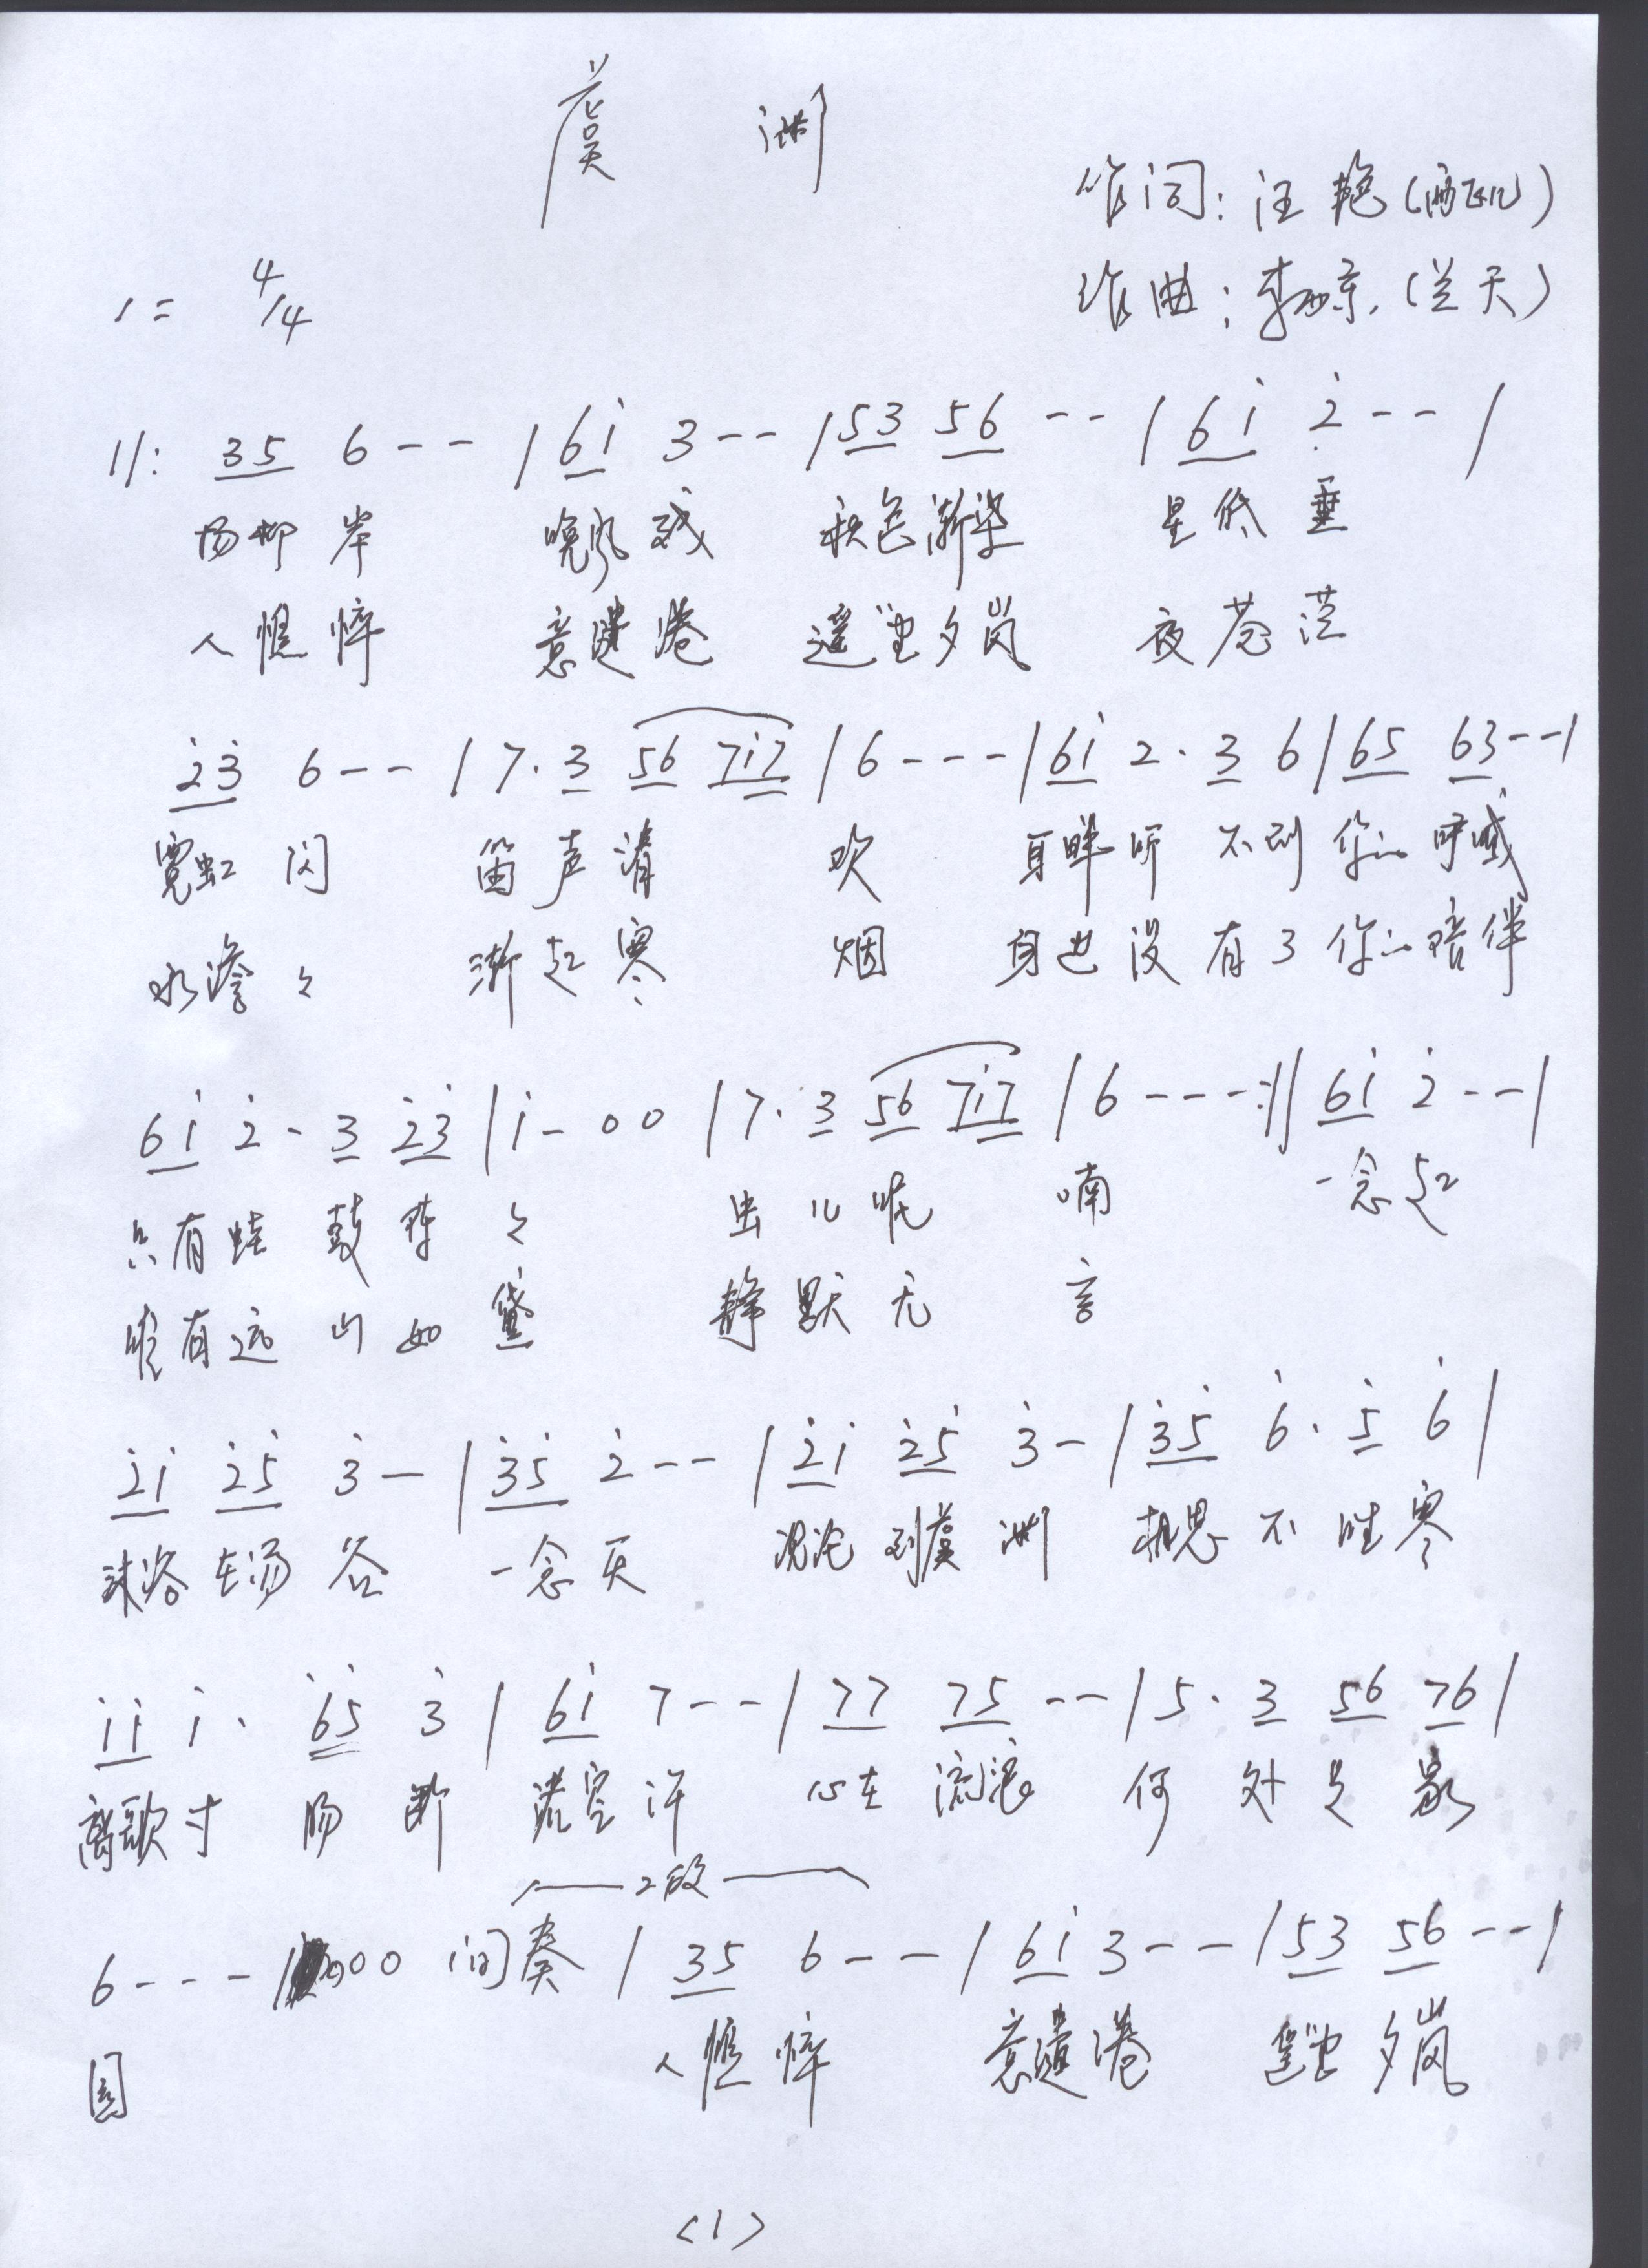 虞 渊
作词: 汪艳
作曲: 李 京. (兰天)
1= 4/4
||: 35 6 - - | 6i 3 - - | 53 56 - - | 6i 2̇ - - |
杨柳岸 晚风残 秋色渐染 星低垂
人憔悴 意缱绻 遥望夕岚 夜苍茫
2̇3̇ 6 - - | 7. 3 56 7i7 | 6 - - - | 6i 2. 3 6 | 65 63 - - |
霓虹闪 笛声清 吹 耳畔听不到你的呼喊
水澹々 渐起寒 烟 身边没有了你的陪伴
6i 2̇. 3 2̇3̇ | i - 0 0 | 7. 3 56 7i7 | 6 - - - :|| 6i 2̇ - - |
只有蛙鼓阵々 虫儿呢 喃 一念起
唯有远山如黛 静默无 言
2̇i 2̇5̇ 3̇ - | 3̇5̇ 2̇ - - | 2̇i 2̇5̇ 3̇ - | 3̇5̇ 6̇. 5̇ 6̇ |
沐浴在汤谷 一念灭 沉沦到虞渊 相思不胜寒
ii i. 6̇5̇ 3̇ | 6i 7 - - | 77 75 - - | 5. 3 56 76 |
离歌寸肠断 诺空许 心在流浪 何处是家
2段
6 - - - | 000 间奏 | 35 6 - - | 6i 3 - - | 53 56 - - |
园 人憔悴 意缱绻 望 夕岚
<1>